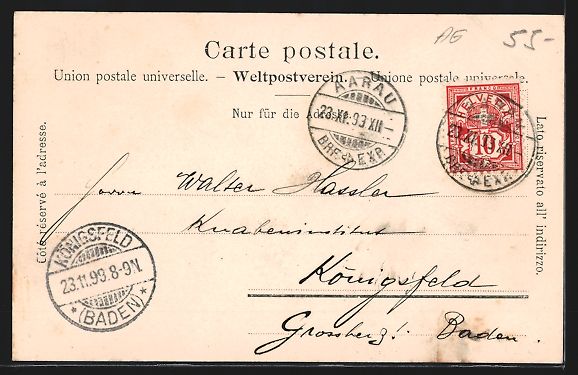 AG 55-
Carte postale.
Union postale universelle. – Weltpostverein. – Unione postale universale.
Nur für die Adresse.
AARAU
23.XI.93 XII
BRF. EXP.
HELVETIA
FRANCO
10
BRF. EXP.
Côté réservé à l'adresse.
Lato riservato all' indirizzo.
Herrn Walter Hassler
Knabeninstitut
Königsfeld
Grossherz! Baden.
KÖNIGSFELD
23.11.99.8-9N.
* (BADEN) *